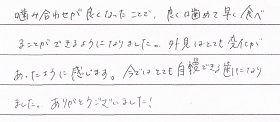 噛み合わせが良くなったことで、良く噛めて早く食べ
ることができるようになりました。外見はとても変化が
あったように感じます。今ではとても自慢できる歯になり
ました。ありがとうございました！